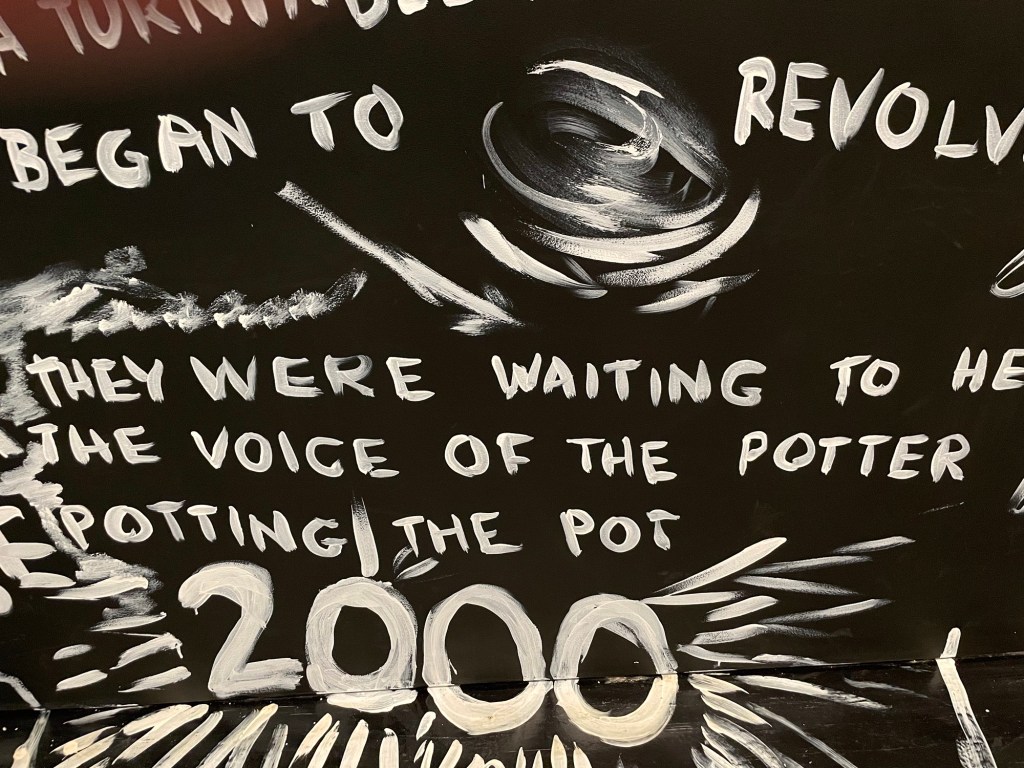 A TURNTABLE
BEGAN TO REVOLV
THEY WERE WAITING TO HE
THE VOICE OF THE POTTER
POTTING THE POT
2000